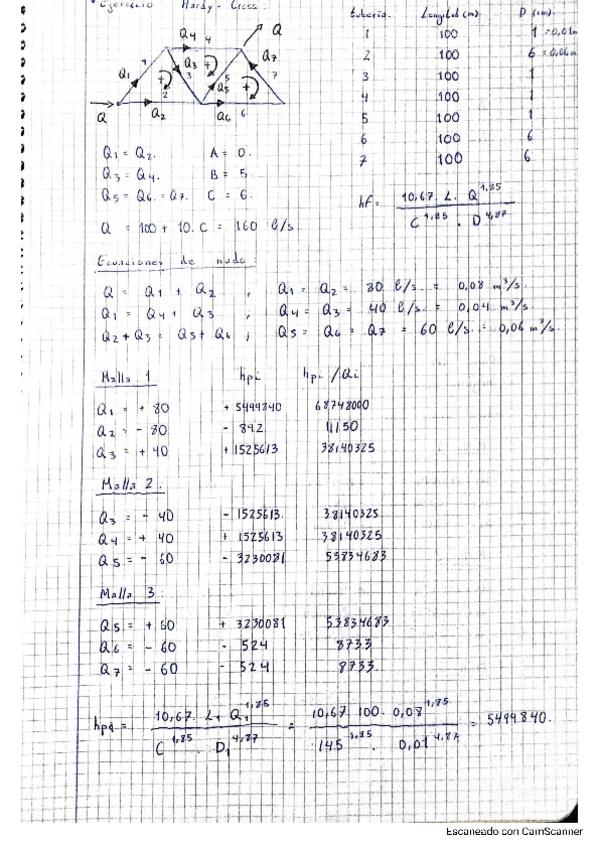 • Ejercicio Hardy - Cross
Q4 4 Q
Q1 1 Q3 3 5 Q5 Q7 7
Q 2 Q2 Q6 6
Tubería Longitud (m) D (cm)
1 100 1 = 0,01m
2 100 6 = 0,06m
3 100 1
4 100 1
5 100 1
6 100 6
7 100 6
Q1 = Q2. A = 0.
Q3 = Q4. B = 5
Q5 = Q6 = Q7. C = 6.
Q = 100 + 10. C = 160 l/s.
hf = 10,67. L. Q^1,85 / C^1,85 . D^4,87
Ecuaciones de nudo:
Q = Q1 + Q2 , Q1 = Q2 = 80 l/s. = 0,08 m³/s.
Q1 = Q4 + Q3 , Q4 = Q3 = 40 l/s. = 0,04 m³/s.
Q2 + Q3 = Q5 + Q6 ; Q5 = Q6 = Q7 = 60 l/s. = 0,06 m³/s.
Malla 1 hpi hpi /Qi
Q1 = + 80 + 5499840 68748000
Q2 = - 80 - 892 11150
Q3 = + 40 + 1525613 38140325
Malla 2.
Q3 = - 40 - 1525613. 38140325
Q4 = + 40 + 1525613 38140325
Q5 = - 60 - 3230081 53834683
Malla 3
Q5 = + 60 + 3230081 53834683
Q6 = - 60 - 524 8733
Q7 = - 60 - 524 8733.
= 10,67. L1 Q1^1,85 / C^1,85 . D1^4,87 = 10,67. 100. 0,08^1,85 / 145^1,85 . 0,01^4,87 = 5499840.
Escaneado con CamScanner